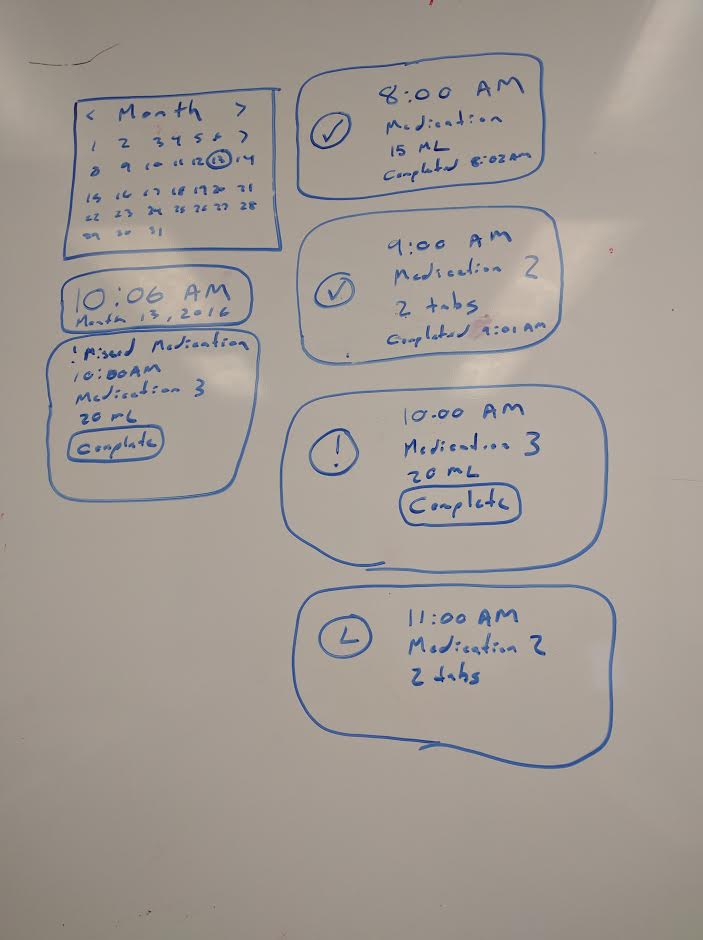 < Month >
1 2 3 4 5 6 7
8 9 10 11 12 13 14
15 16 17 18 19 20 21
22 23 24 25 26 27 28
29 30 31
10:06 AM
Month 13, 2016
! Missed Medication
10:00AM
Medication 3
20 mL
Complete
8:00 AM
Medication
15 ML
Completed 8:02AM
9:00 AM
Medication 2
2 tabs
Completed 9:01 AM
10:00 AM
!
Medication 3
20 mL
Complete
11:00 AM
Medication 2
2 tabs